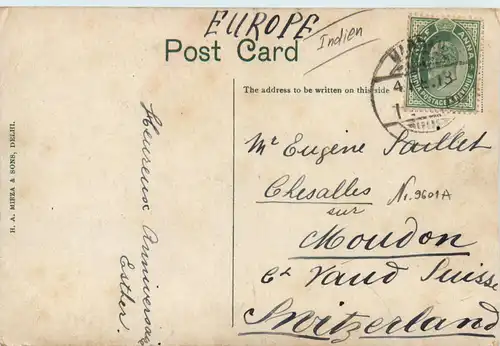 EUROPE
Indien
Post Card
The address to be written on this side
INDIA POSTAGE & REVENUE
Heureux Anniversaire
Esther.
H. A. MIRZA & SONS, DELHI.
Mr Eugène Jaillet
Chesalles
Nr. 9601A
sur
Moudon
Ct Vaud Suisse
Switzerland